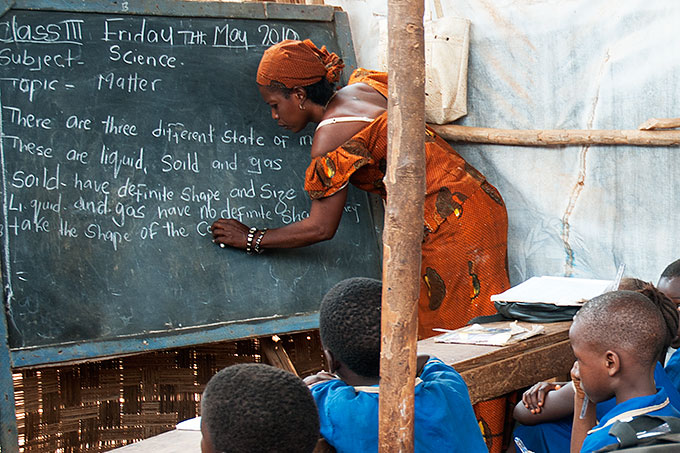 CLASS III Friday 7th May 2010
Subject - Science
Topic - Matter
There are three different state of m
These are liquid, Soild and gas
Soild - have definite Shape and Size
Liquid and gas have no definite Sha
take the Shape of the Co